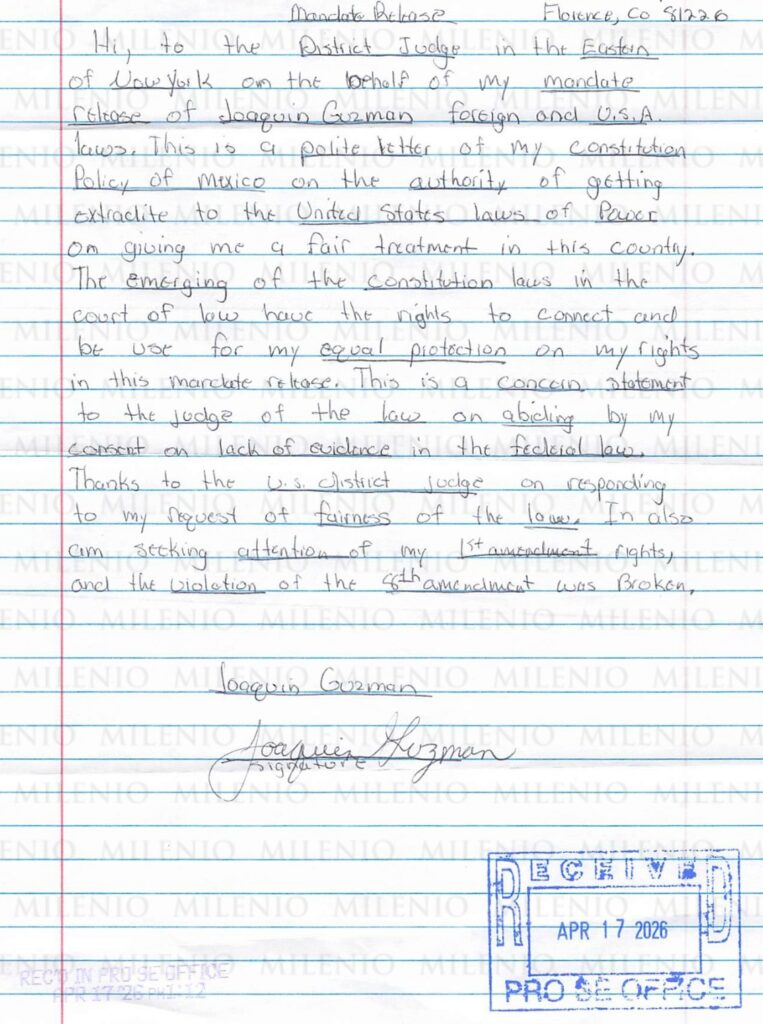 Mandate Release Florence, CO 81226
Hi, to the District Judge in the Eastern
of New York on the behalf of my mandate
release of Joaquin Guzman foreign and U.S.A.
laws. This is a polite letter of my constitution
Policy of mexico on the authority of getting
extradite to the United States laws of Power
on giving me a fair treatment in this country.
The emerging of the constitution laws in the
court of law have the rights to connect and
be use for my equal protection on my rights
in this mandate release. This is a concern statement
to the judge of the law on abiding by my
consent on lack of evidence in the federal law.
Thanks to the U.S. district judge on responding
to my request of fairness of the law. In also
am seeking attention of my 1st amendment rights,
and the violation of the 8th amendment was Broken.
Joaquin Guzman
Joaquin Guzman
signature
RECEIVED
APR 17 2026
PRO SE OFFICE
REC'D IN PRO SE OFFICE
APR 17 '26 PM1:12
MILENIO